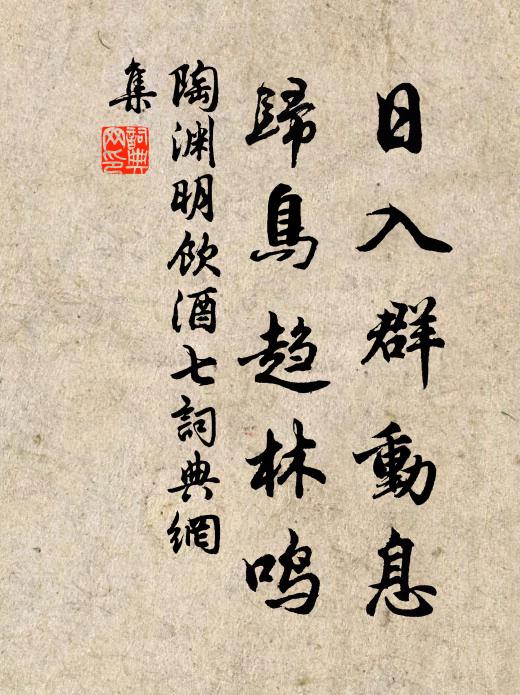 日入群動息
歸鳥趨林鳴
陶淵明飲酒七詞典網
集
詞典网印